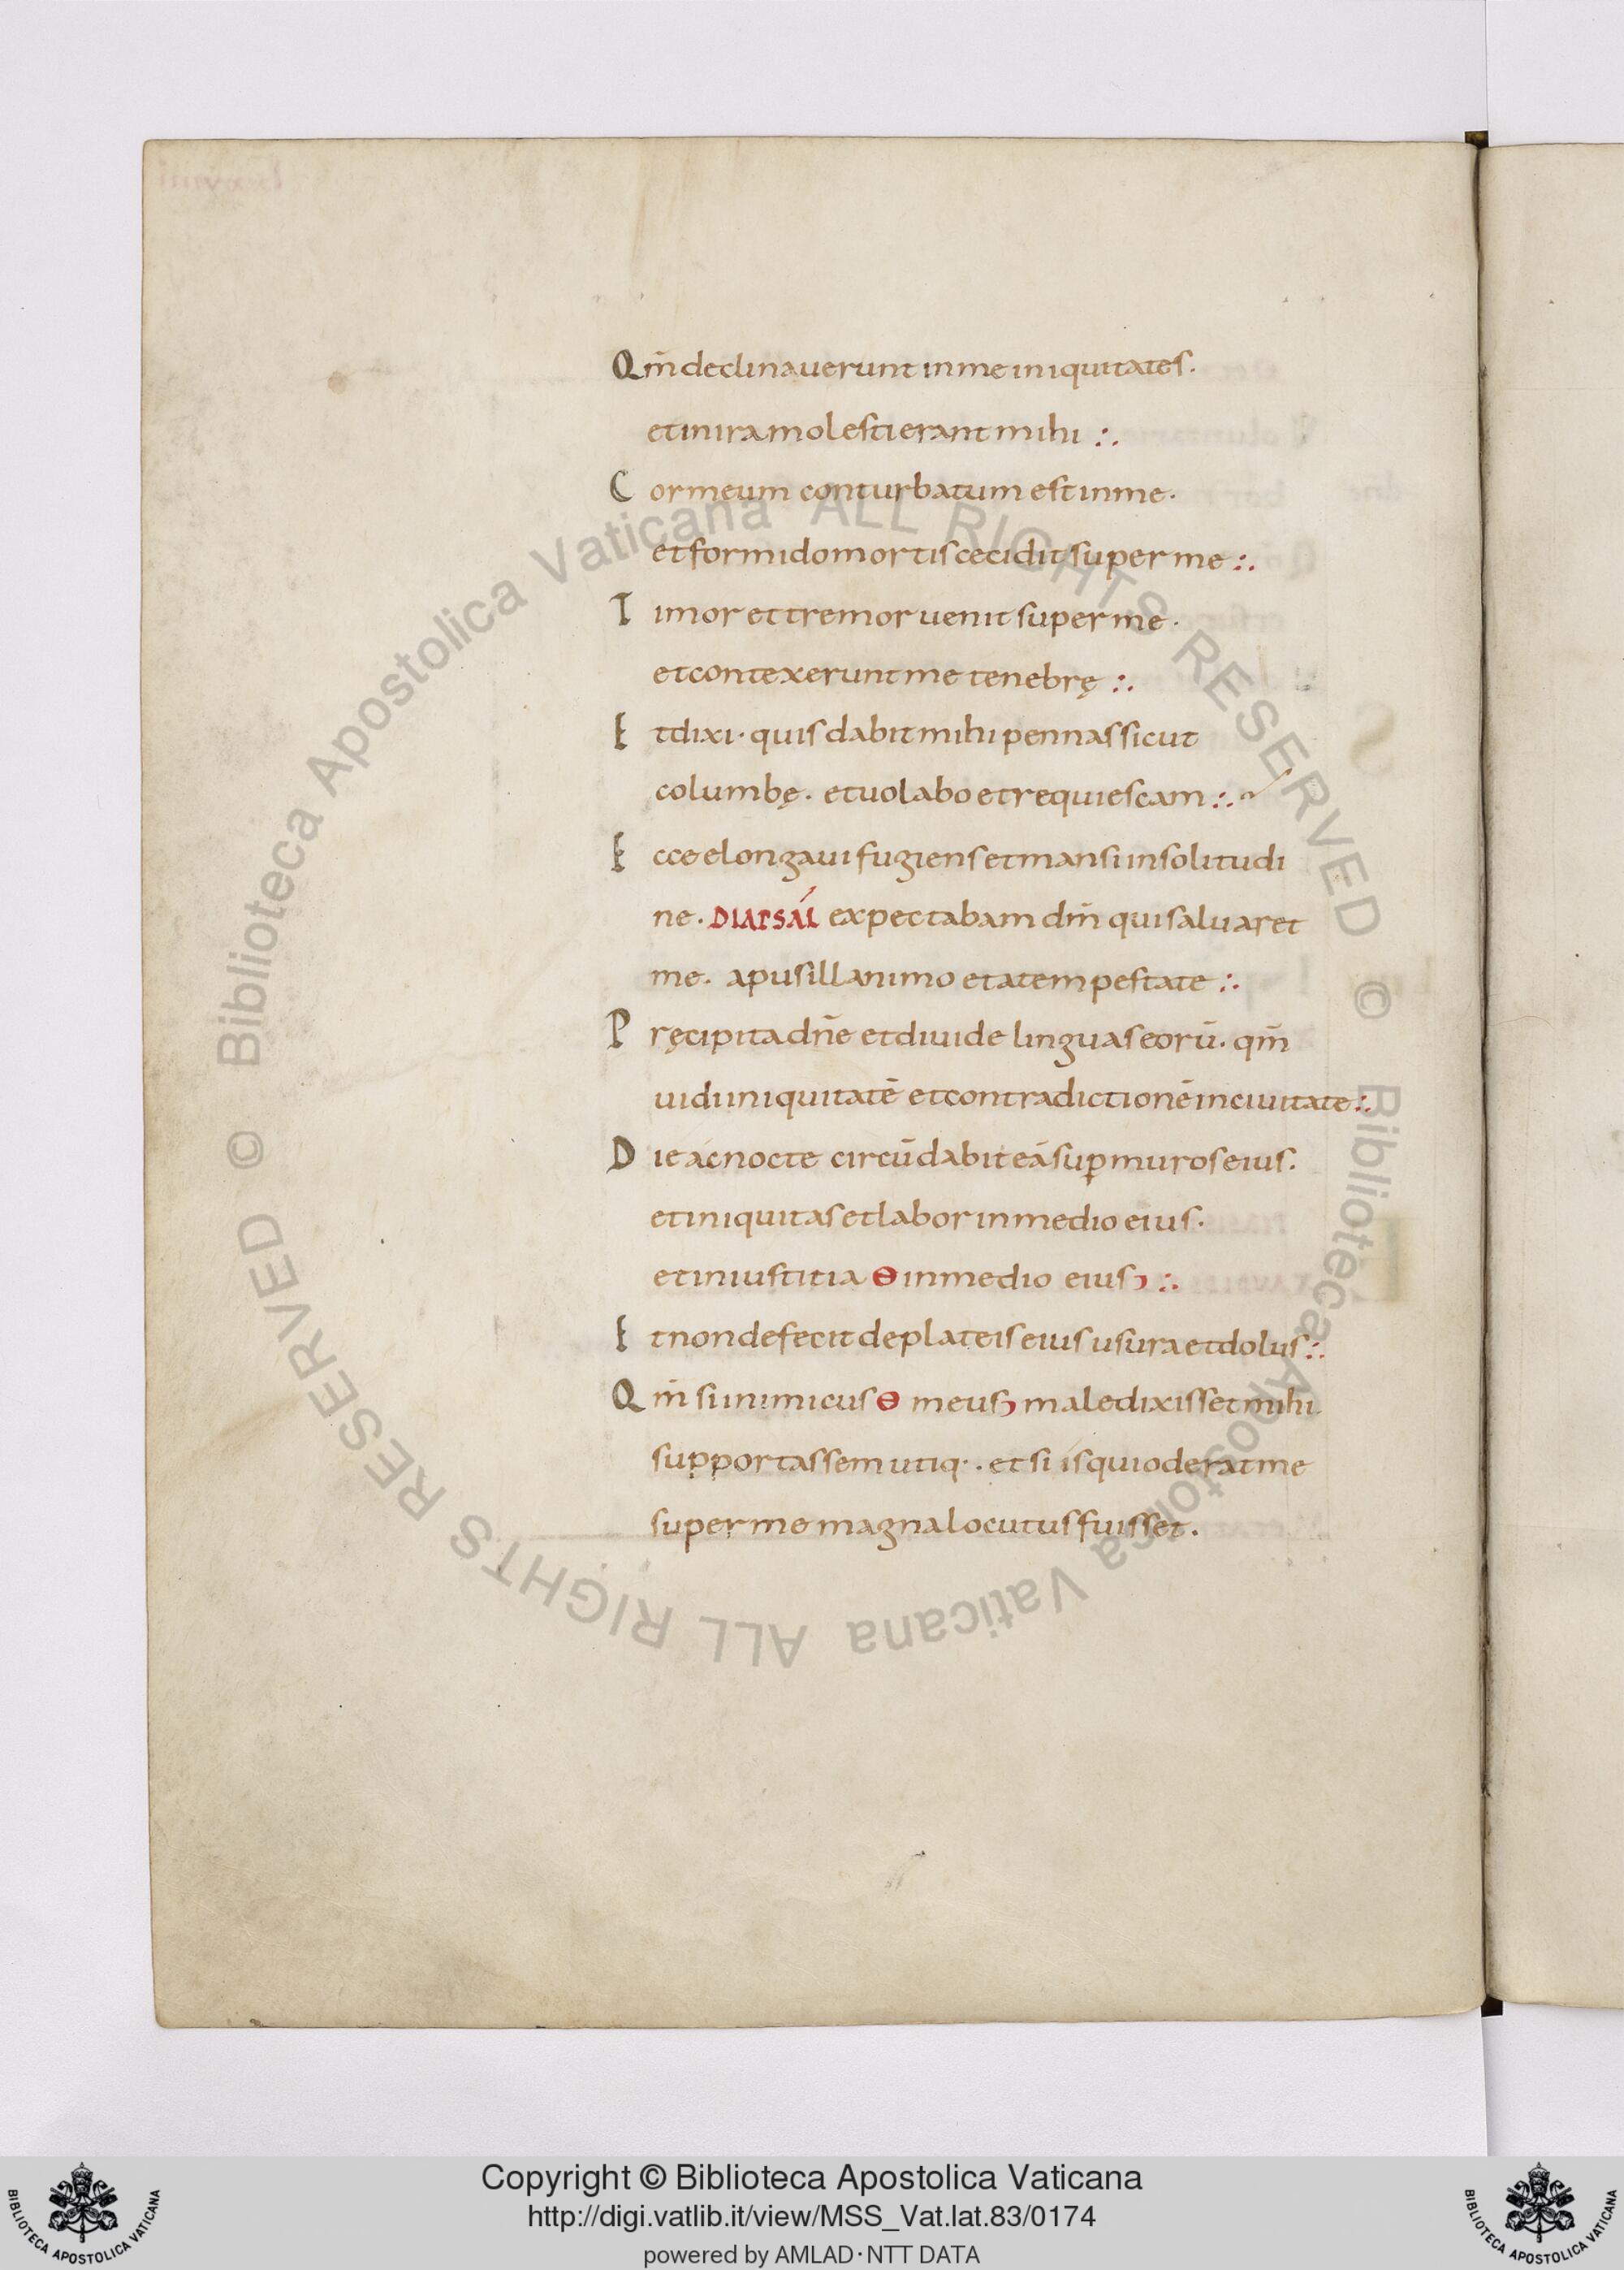 Qm̄ declinauerunt in me iniquitates.
et in ira molesti erant mihi :.
Cor meum conturbatum est in me.
et formido mortis cecidit super me :.
Timor et tremor uenit super me.
et contexerunt me tenebrę :.
Et dixi. quis dabit mihi pennas sicut
columbę. et uolabo et requiescam :.
Ecce elongaui fugiens et mansi in solitudi
ne. DIAPSAL expectabam dm̄ qui saluaret
me. a pusillanimo et a tempestate :.
Pręcipita dn̄e et diuide linguas eorū. qm̄
uidi iniquitatē et contradictionē in ciuitate :.
Die ac nocte circūdabit eā sup̱ muros eius.
et iniquitas et labor in medio eius.
et iniustitia ϴ in medio eius :.
Et non defecit de plateis eius usura et dolus :.
Qm̄ si inimicus ϴ meus maledixisset mihi
supportassem utiq·. et si is qui oderat me
super me magna locutus fuisset.
Copyright © Biblioteca Apostolica Vaticana
http://digi.vatlib.it/view/MSS_Vat.lat.83/0174
powered by AMLAD·NTT DATA
© Biblioteca Apostolica Vaticana ALL RIGHTS RESERVED
© Biblioteca Apostolica Vaticana ALL RIGHTS RESERVED
BIBLIOTECA APOSTOLICA VATICANA
BIBLIOTECA APOSTOLICA VATICANA